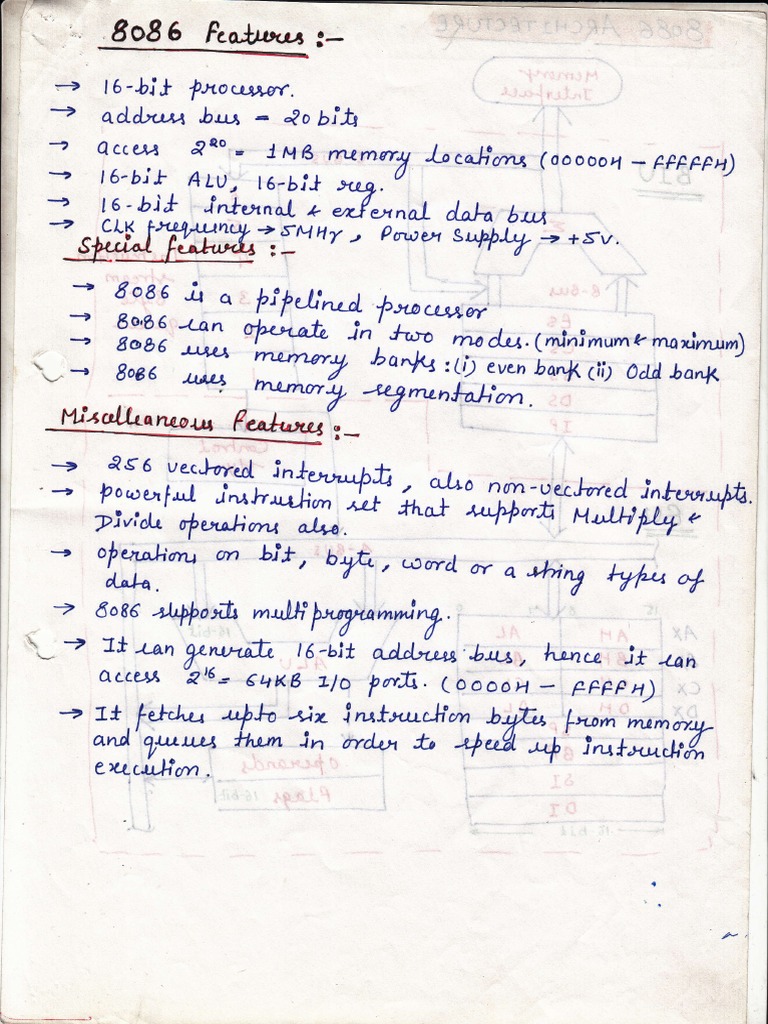 8086 Features :-
→ 16-bit processor.
→ address bus = 20 bits
→ access 2²⁰ = 1MB memory locations (00000H - FFFFFH)
→ 16-bit ALU, 16-bit reg.
→ 16-bit internal & external data bus
→ CLK frequency → 5MHz, Power Supply → +5V.
Special features :-
→ 8086 is a pipelined processor
→ 8086 can operate in two modes. (minimum & maximum)
→ 8086 uses memory banks : (i) even bank (ii) Odd bank
→ 8086 uses memory segmentation.
Miscelleaneous features :-
→ 256 vectored interrupts, also non-vectored interrupts.
→ powerful instruction set that supports Multiply &
Divide operations also.
→ operations on bit, byte, word or a string types of
data.
→ 8086 supports multiprogramming.
→ It can generate 16-bit address bus, hence it can
access 2¹⁶ = 64KB I/O ports. (0000H - FFFFH)
→ It fetches upto six instruction bytes from memory
and queues them in order to speed up instruction
execution.
8086 ARCHITECTURE
Memory
Interface
BIU